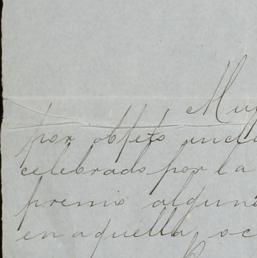 Muy
por objeto inclu
celebrado por la
premio alguno
en aquella, oc